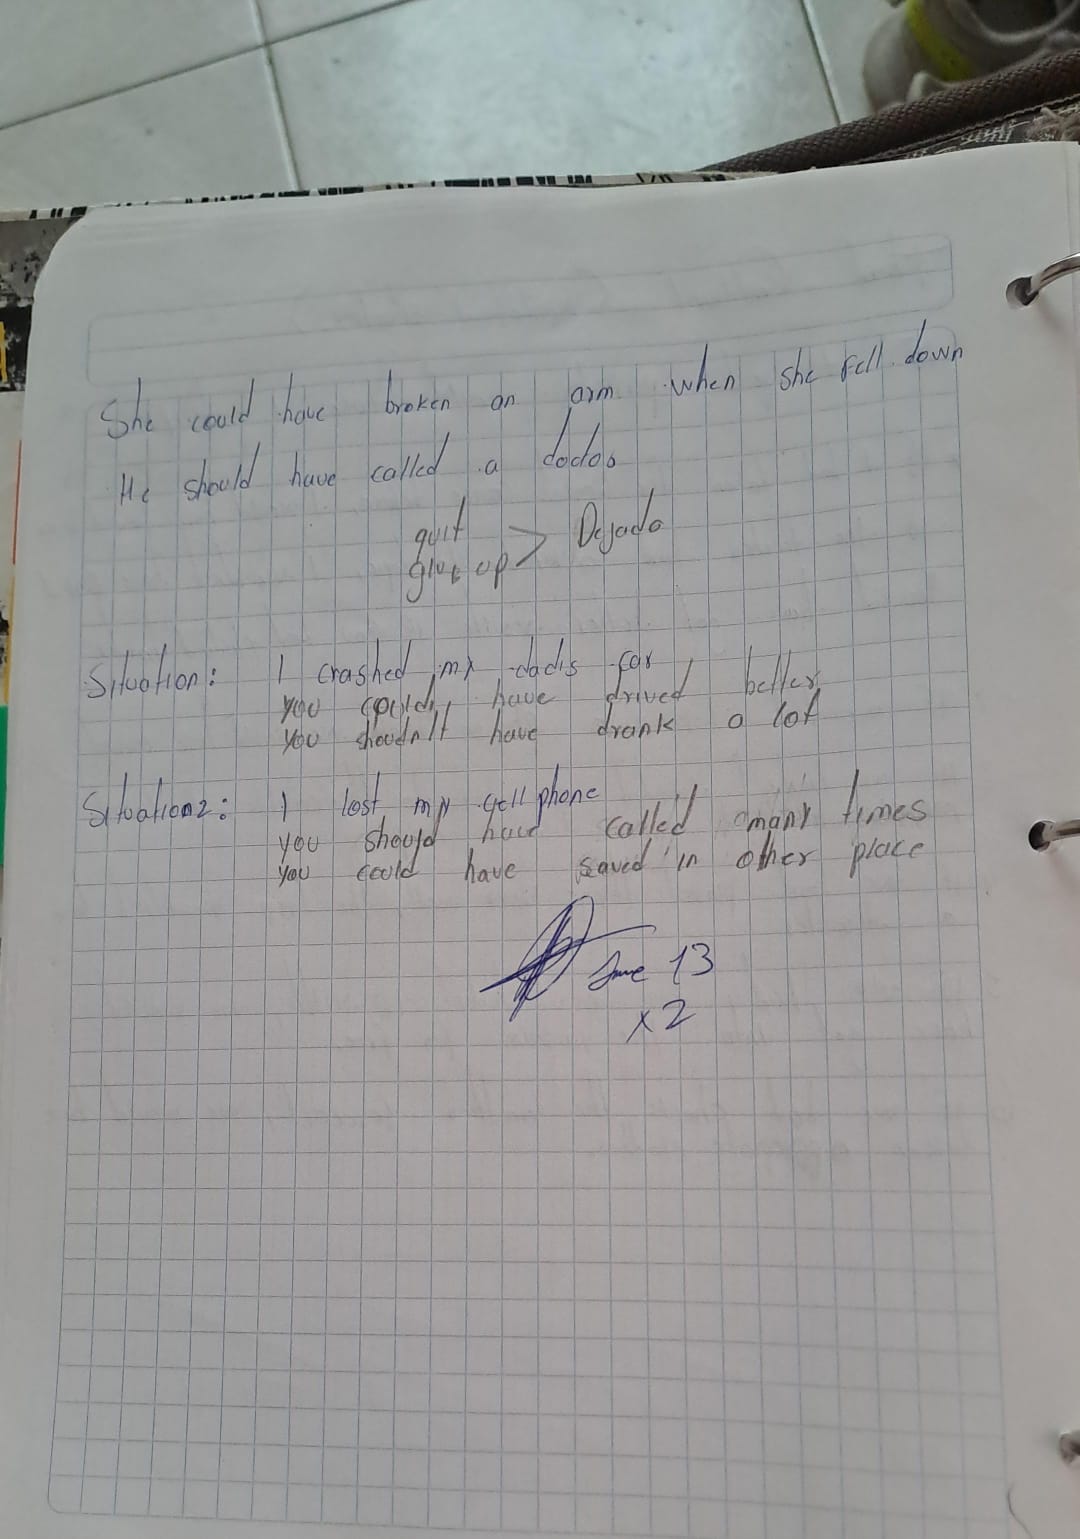 She could have broken an arm when she fell down
He should have called a doctor
quit
give up > Dejado
Situation: I crashed my dad's car
you could have drived better
you shoudn't have drank a lot
Situation 2: I lost my cellphone
you should have called many times
you could have saved in other place
June 13
x2